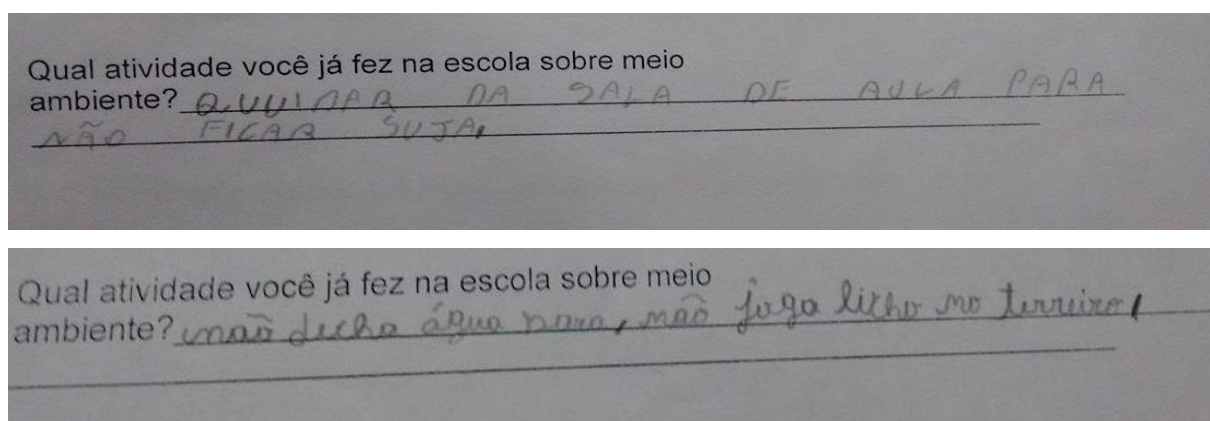 Qual atividade você já fez na escola sobre meio
ambiente? QUUIDAR DA SALA DE AULA PARA
NÃO FICAR SUJA.
Qual atividade você já fez na escola sobre meio
ambiente? não decha água para, não joga licho no terreiro,